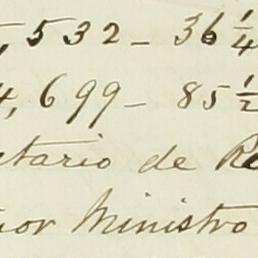 5,532- 36 1/4
4,699- 85 1/2
etario de Re
ñor Ministro